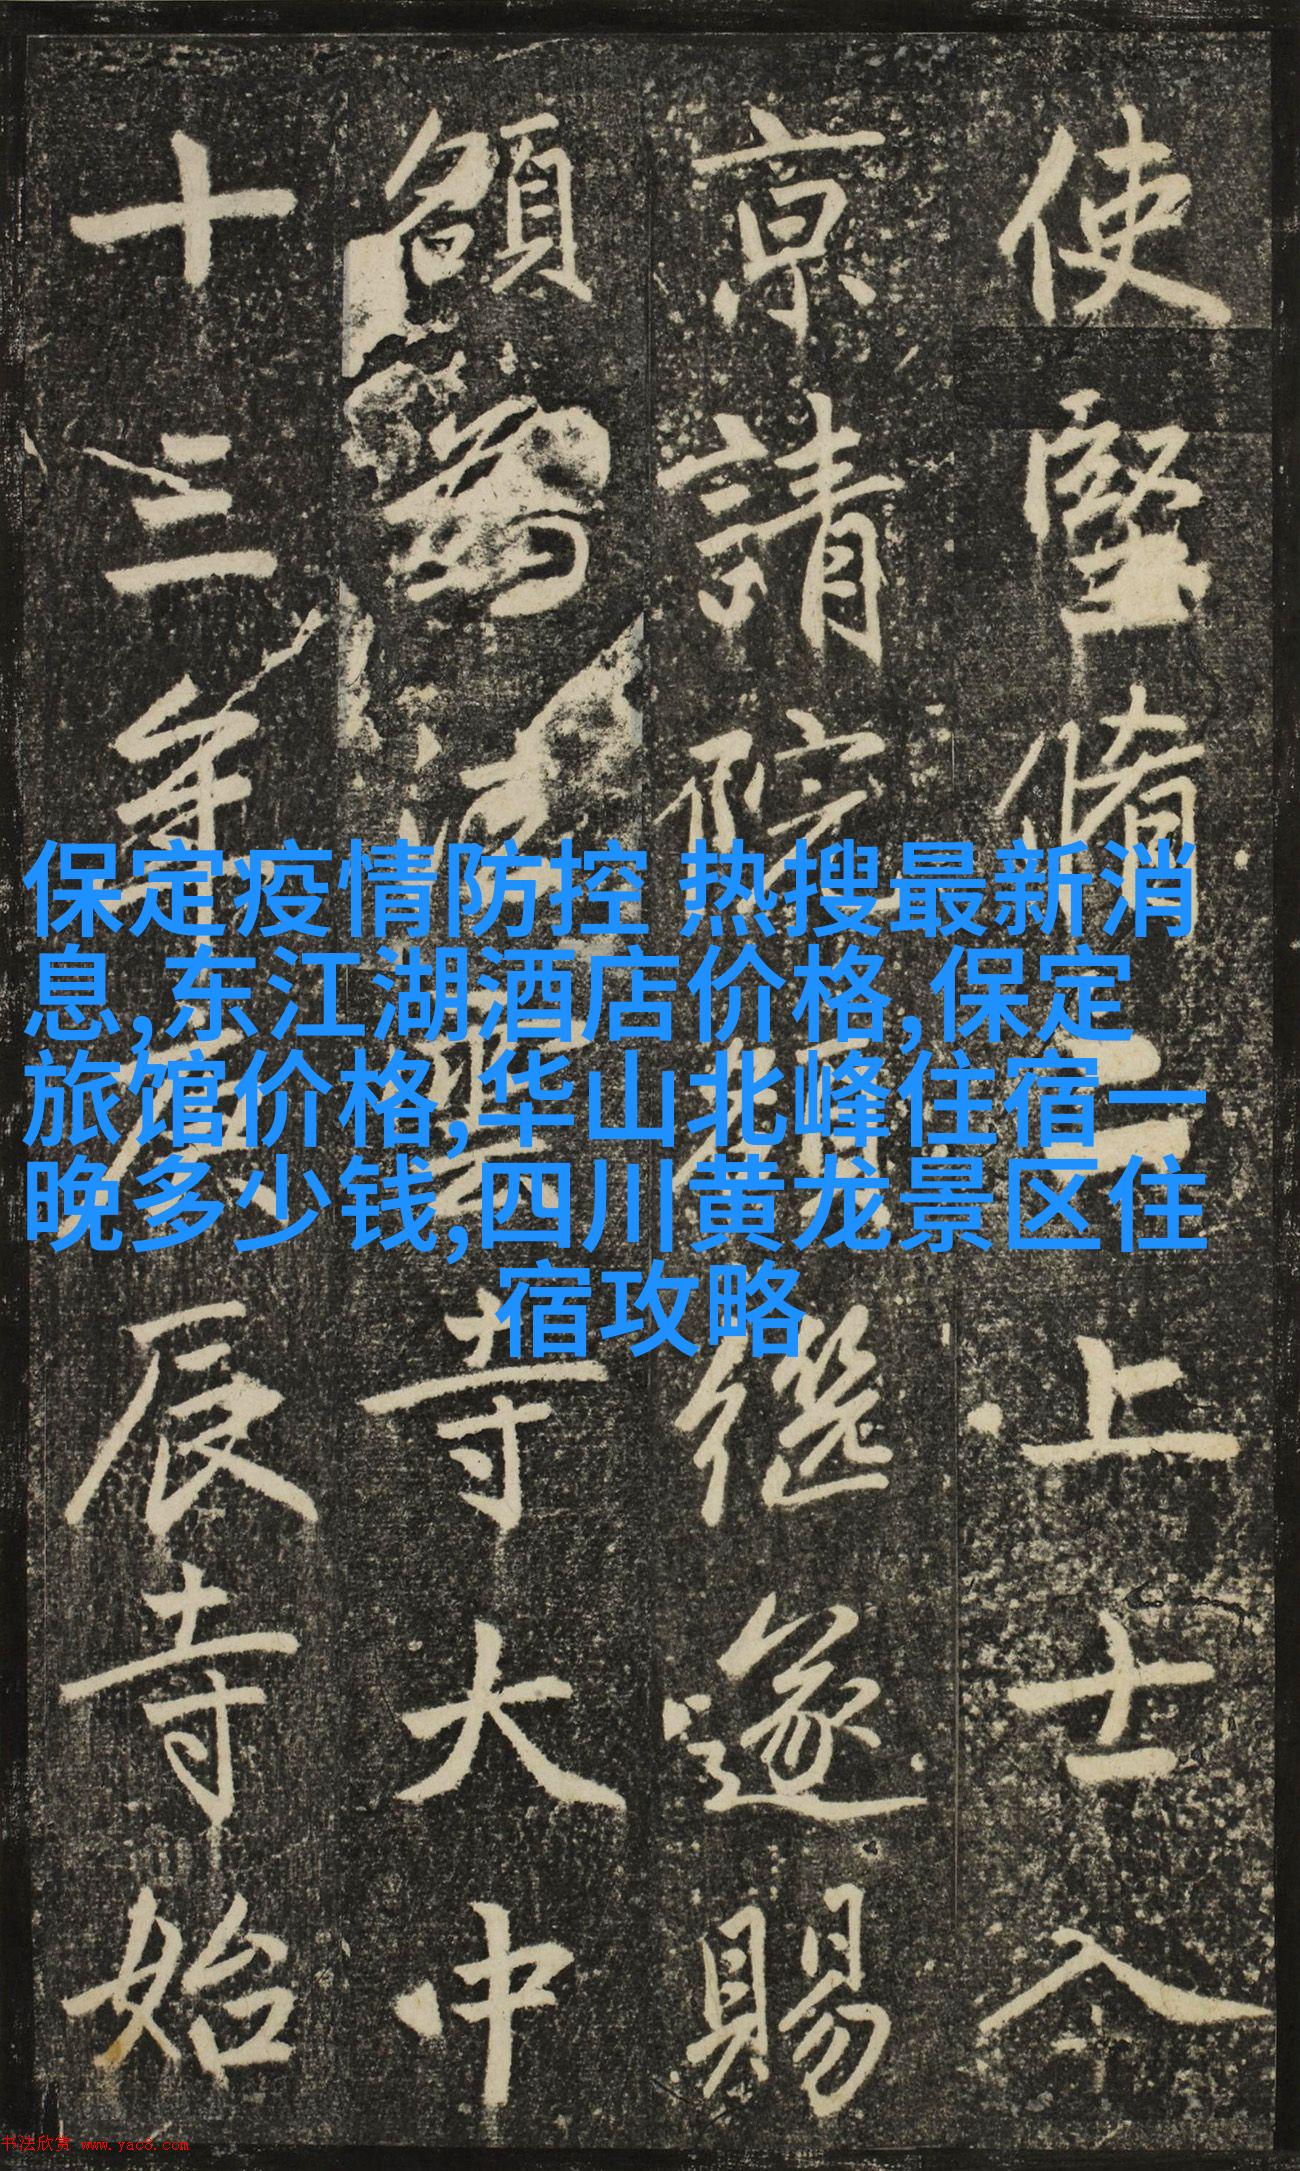 使堅二上士入
京請院繼遂賜
額寺大中
十三年辰寺始
保定疫情防控 热搜最新消
息,东江湖酒店价格,保定
旅馆价格,华山北峰住宿一
晚多少钱,四川黄龙景区住
宿攻略
书法欣赏 www.yac8.com